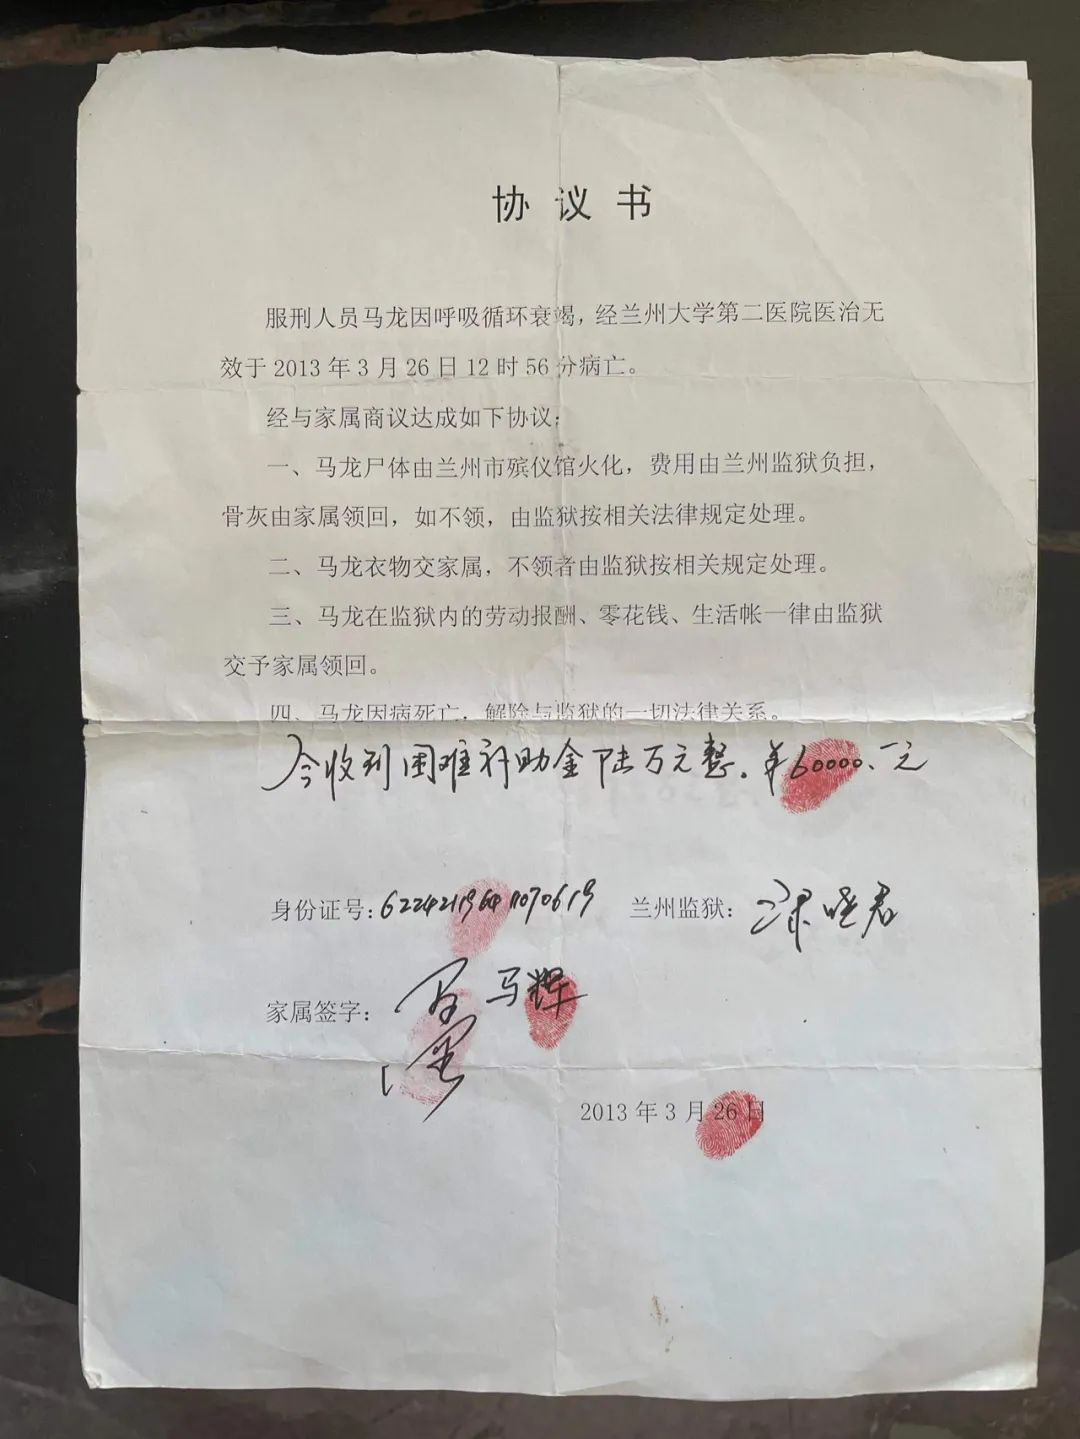 协议书
服刑人员马龙因呼吸循环衰竭，经兰州大学第二医院医治无
效于2013年3月26日12时56分病亡。
经与家属商议达成如下协议：
一、马龙尸体由兰州市殡仪馆火化，费用由兰州监狱负担，
骨灰由家属领回，如不领，由监狱按相关法律规定处理。
二、马龙衣物交家属，不领者由监狱按相关规定处理。
三、马龙在监狱内的劳动报酬、零花钱、生活帐一律由监狱
交予家属领回。
四、马龙因病死亡，解除与监狱的一切法律关系。
今收到困难补助金陆万元整。¥60000.一元
身份证号：622421196411070619 兰州监狱：
家属签字： 马辉
2013年3月26日